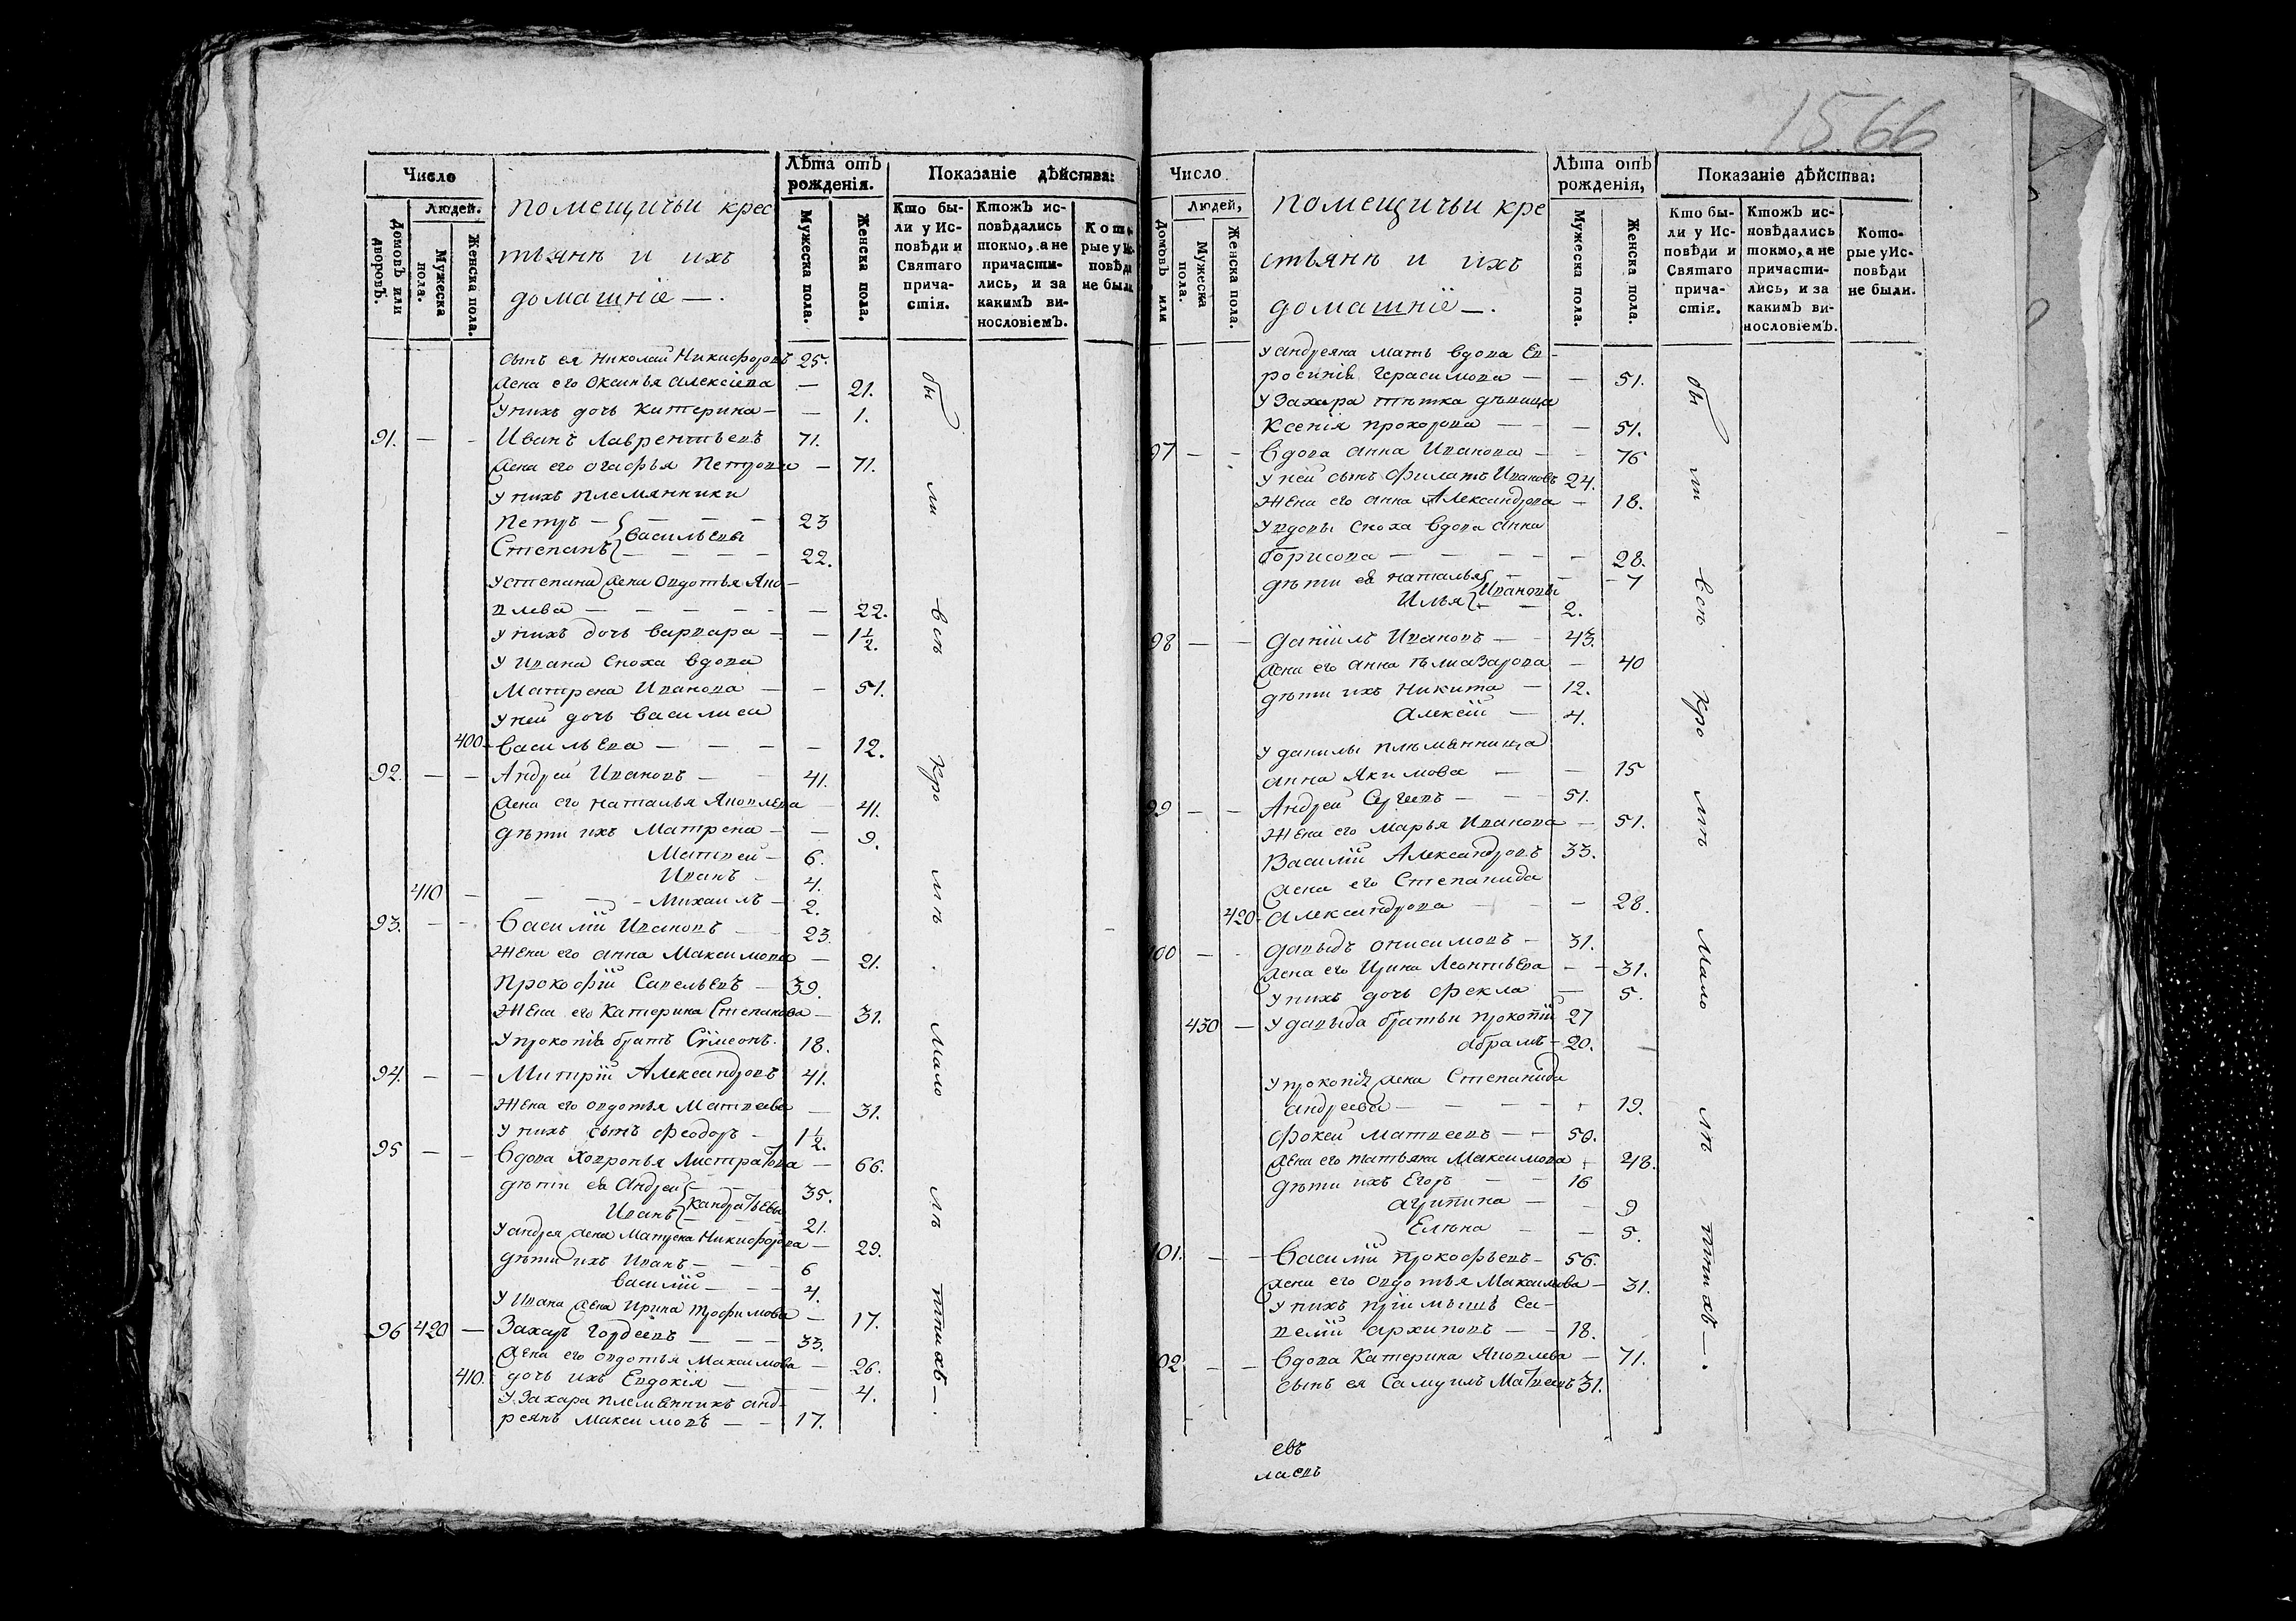 1566
Число
Людей.
Домовъ или дворовъ.
Мужеска пола.
Женска пола.
помещичьи крес
тьянѣ и ихъ
домашніе —.
Лѣта отъ рожденія.
Мужеска пола.
Женска пола.
Показаніе дѣйства:
Кто были у Исповѣди и Святаго причастія.
Ктожъ исповѣдались токмо, а не причастились, и за какимъ винословіемъ.
Которые у Исповѣди не были.
сынъ ея Николай Никифоровъ 25.
жена его Оксинья Алексіева — 21.
У нихъ дочь Катерина — — 1.
91. — — Иванъ Лаврентьевъ 71.
жена его Огафья Петрова — 71.
У нихъ племянники
Петръ — } — — — 23
Васильевы
Степанъ } — — — 22.
У степана жена Овдотья Яко—
влева — — — — — 22.
У нихъ дочь Варвара — — 1 1/2.
У Ивана сноха вдова
Матрена Иванова — — 51.
У ней дочь Василиса
400 Васильева — — — — 12.
92. — — Андрей Ивановъ — — 41.
жена его Наталья Яковлева — 41.
дѣти ихъ Матрена — — 9.
Матвей — 6.
Иванъ — 4.
410 — — — — Михаилъ — 2.
93. — — Василій Ивановъ — — 23.
Жена его Анна Максимова — 21.
Прокофій Савельевъ — 39.
Жена его Катерина Степанова — 31.
У прокопія братъ Сѵмеонъ. 18.
94. — — Митрій Александровъ 41.
Жена его Овдотья Матвеева — 31.
У нихъ сынъ Феодоръ — 1 1/2.
95 — — Вдова Ховронья Листратова — 66.
дѣти ея Андрей } — — 35.
Кандратьевы
Иванъ } — — 21.
У андрея жена Матрена Никифорова — 29.
дѣти ихъ Иванъ — — — 6
Василій — — — 4.
У Ивана жена Ирина Трофимова — 17.
96 420 — Захаръ Гордеевъ — — — 33.
жена его Овдотья Максимова — 26.
410. дочь ихъ Евдокія — — — 4.
У Захара племянникъ Анд—
реянъ Максимовъ — — 17.
бы
ли
всѣ
кро
мѣ
мало
лѣ
тнихъ —.
Число
Людей,
Домовъ или
Мужеска пола.
Женска пола.
помещичьи кре
стьянѣ и ихъ
домашніе —.
Лѣта отъ рожденія,
Мужеска пола.
Женска пола.
Показаніе дѣйства:
Кто были у Исповѣди и Святаго причастія.
Ктожъ исповѣдались токмо, а не причастились, и за какимъ винословіемъ.
Которые у Исповѣди не были.
У андреяна мать вдова Ев—
росинія Герасимова — — 51.
У Захара тѣтка дѣвица
Ксенія прохорова — — — 51.
97 — — Вдова Анна Иванова — — 76
У ней сынъ Филатъ Ивановъ 24.
Жена его Анна Александрова — 18.
У вдовы сноха вдова Анна
борисова — — — — — 28.
дѣти ея Наталья } — — — 7
Ивановы
Илья } — — 2.
98 — — Даніилъ Ивановъ — — 43.
жена его Анна Ѣлиазарова — 40
дѣти ихъ Никита — 12.
Алексій — 4.
У данилы племянница
Анна Якимова — — 15
99 — — Андрей Сергеевъ — — — 51.
Жена его Марья Иванова — 51.
Василій Александровъ 33.
жена его Степанида
420 Александрова — — 28.
100 — — Давыдъ Онисимовъ — 31.
жена его Ирина Леонтьева — — 31.
У нихъ дочь Фекла — 5.
430 — У давыда братьи прокопій 27
Абрамъ — 20.
У прокопія жена Степанида
андреева — — — — — 19.
Фокей Матвеевъ — — 50.
жена его Татьяна Максимова — 48.
дѣти ихъ Егоръ — — 16
агрипина — — 9
Елѣна — — 5.
101. — — Василій прокофьевъ — 56.
жена его Овдотья Максимова — 31.
У нихъ пріимышъ Са—
велій архиповъ — — 18.
102 — — Вдова Катерина Яковлева — 71.
сынъ ея Самуилъ Матвеевъ 31.
бы
ли
всѣ
кро
мѣ
мало
лѣ
тнихъ —.
евъ